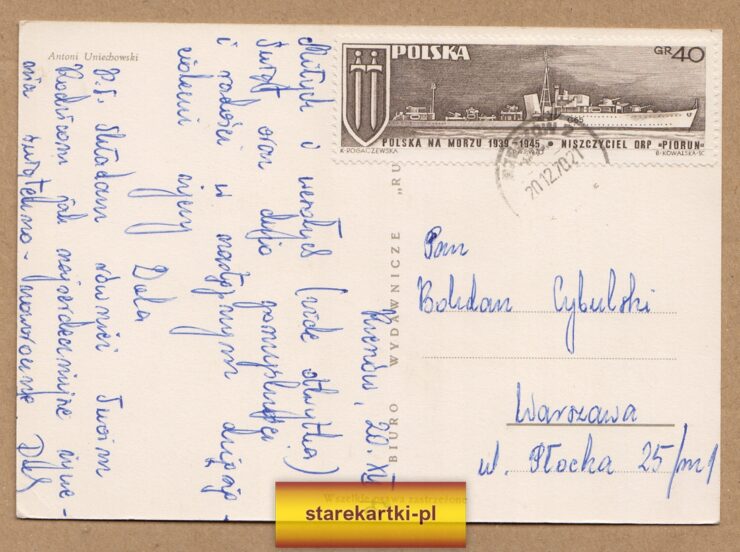 Antoni Uniechowski
POLSKA
GR 40
POLSKA NA MORZU 1939-1945 • NISZCZYCIEL ORP "PIORUN"
K·ROGACZEWSKA
B·KOWALSKA·SC
20.12.70.21
BIURO WYDAWNICZE „RU
20. XII
Miłych i wesołych (vide odwrotka)
Świąt oraz dużo pomyślności
i radości w nadchodzącym
życzy
Dala
P.S. Składam również Twoim
Rodzicom jak najserdeczniejsze życze-
nia świąteczno-noworoczne
Pan
Bohdan Cybulski
Warszawa
ul. Płocka 25/m1
Wszelkie prawa zastrzeżone
starekartki-pl